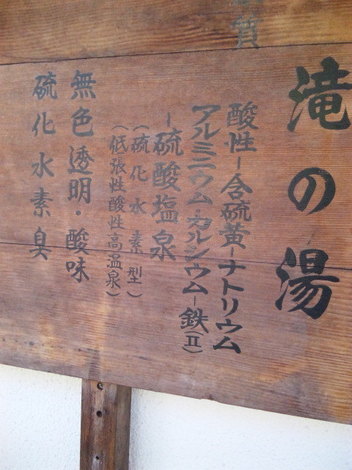 滝の湯
質
酸性-含硫黄-ナトリウム
アルミニウム・カルシウム-鉄(Ⅱ)
-硫酸塩泉
(硫化水素型)
(低張性酸性高温泉)
無色透明・酸味
硫化水素臭